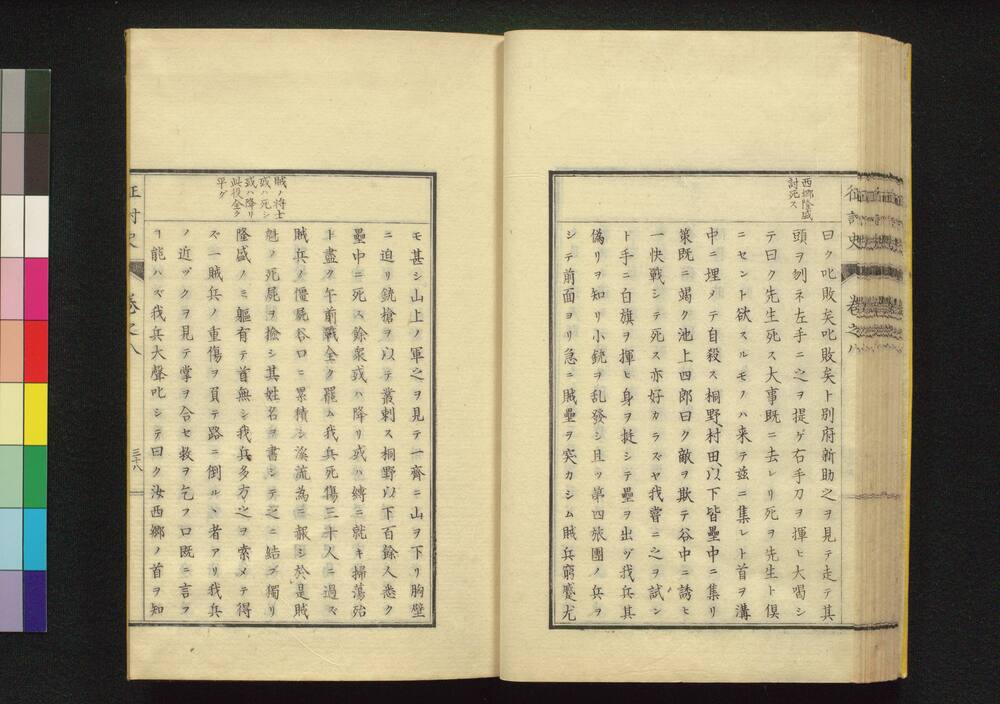 征討史 卷之八
西郷隆盛
討死ス
曰ク叱敗矣叱敗矣ト別府新助之ヲ見テ走テ其
頭ヲ刎ネ左手ニ之ヲ提ゲ右手刀ヲ揮ヒ大喝シ
テ曰ク先生死ス大事既ニ去レリ死ヲ先生ト倶
ニセント欲スルモノハ来テ茲ニ集レト首ヲ溝
中ニ埋メテ自殺ス桐野村田以下皆壘中ニ集リ
策既ニ竭ク池上四郎曰ク敵ヲ欺テ谷中ニ誘ヒ
一快戰シテ死ス亦好カラズヤ我嘗ニ之ヲ試ン
ト手ニ白旗ヲ揮ヒ身ヲ挺シテ壘ヲ出ヅ我兵其
偽リヲ知リ小銃ヲ乱發シ且ツ第四旅團ノ兵ヲ
シテ前面ヨリ急ニ賊壘ヲ突カシム賊兵窮蹙尤
モ甚シ山上ノ軍之ヲ見テ一齊ニ山ヲ下リ胸壁
ニ迫リ銃槍ヲ以テ叢刺ス桐野以下百餘人悉ク
壘中ニ死ス餘衆或ハ降リ或ハ縛ニ就キ掃蕩殆
ト盡ク午前戰全ク罷ム我兵死傷三十人ニ過ズ
賊兵ノ僵屍谷口ニ累積シ溪流為ニ赧シ於是賊
魁ノ死屍ヲ撿シ其姓名ヲ書シテ之ニ結ブ獨リ
隆盛ノミ軀有テ首無シ我兵多方之ヲ索メテ得
ズ一賊兵ノ重傷ヲ負テ路ニ倒ルヽ者アリ我兵
ノ近ヅクヲ見テ掌ヲ合セ救ヲ乞フ口既ニ言フ
ヿ能ハズ我兵大聲叱シテ曰ク汝西郷ノ首ヲ知
賊ノ将士
或ハ死シ
或ハ降リ
此役全ク
平グ
征討史 卷之八 三十八